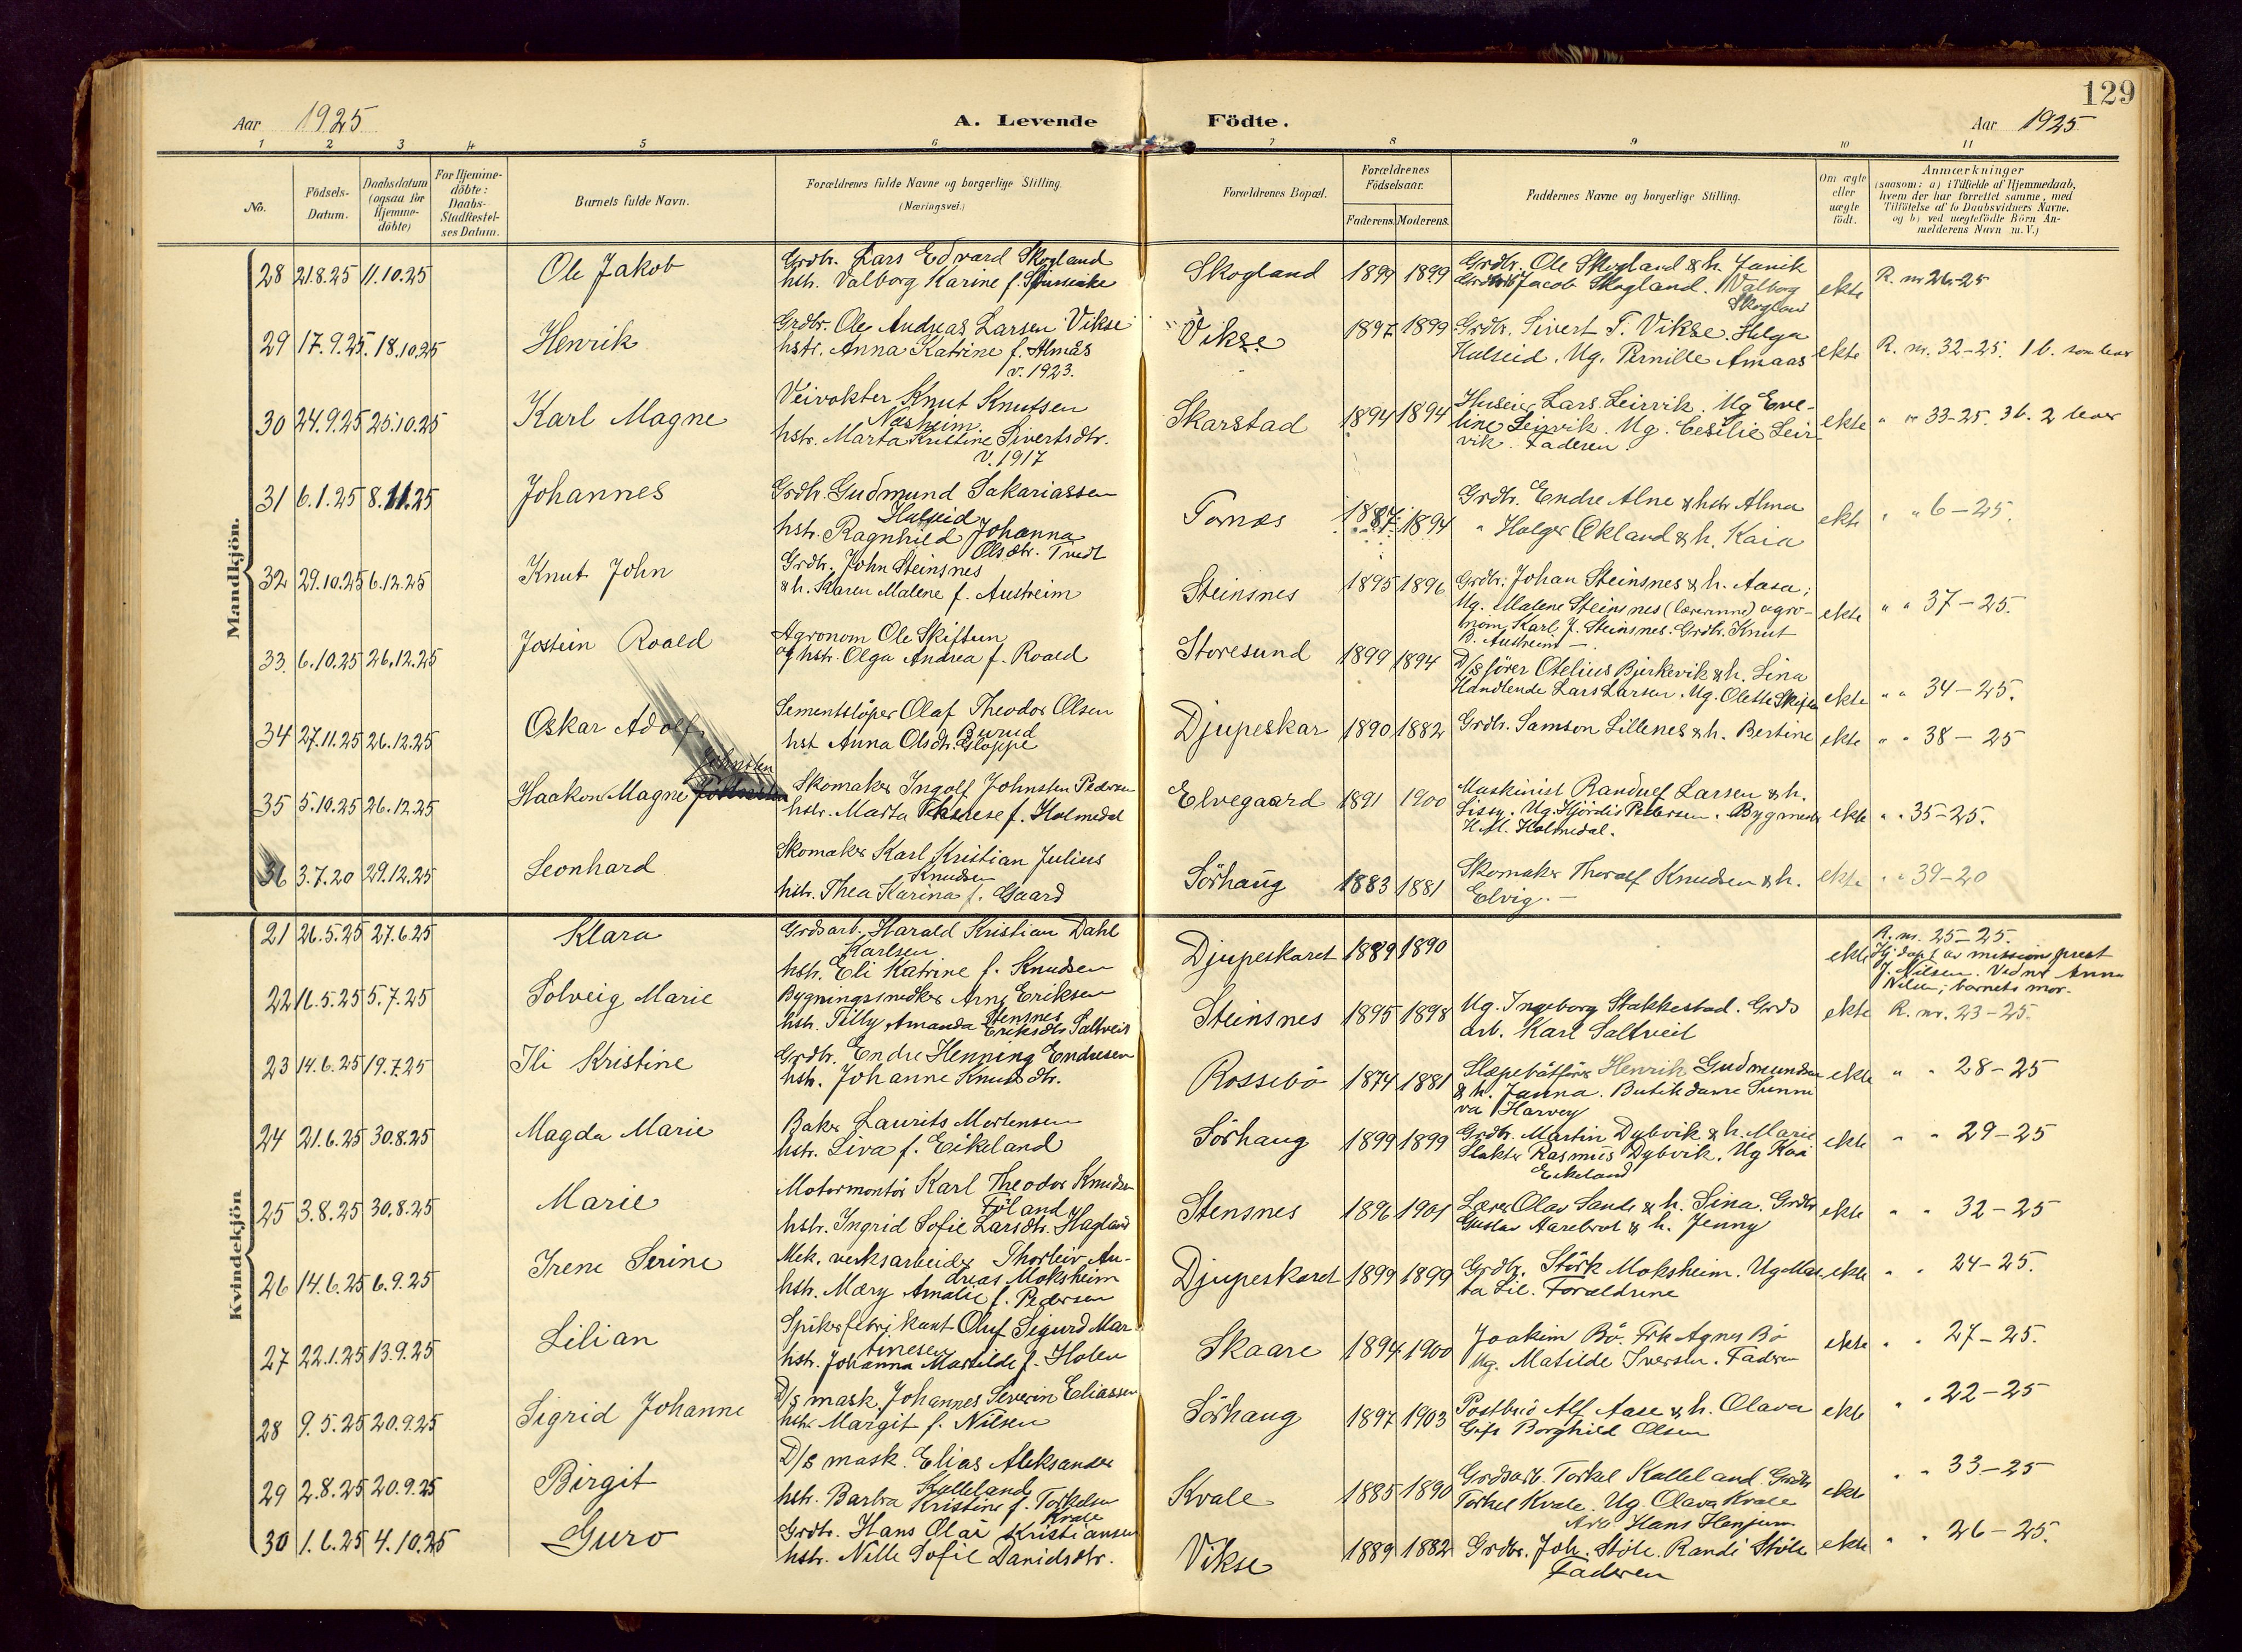 129
Aar 1925
A. Levende Födte.
Aar 1925
1 2 3 4 5 6 7 8 9 10 11
No.
Födsels-Datum.
Daabsdatum (ogsaa for Hjemme-döbte)
For Hjemme-döbte: Daabs-Stadfæstel-ses Datum.
Barnets fulde Navn.
Forældrenes fulde Navne og borgerlige Stilling.
(Næringsvei.)
Forældrenes Bopæl.
Forældrenes Födselsaar.
Faderens. Moderens.
Faddernes Navne og borgerlige Stilling.
Om ægte eller uægte födt.
Anmærkninger
(saasom: a) i Tilfælde af Hjemmedaab,
hvem der har forrettet samme, med
Tilföielse af to Daabsvidners Navne,
og b) ved uegtefödte Börn An-
melderens Navn m. V.)
Mandkjön.
28 21.8.25 11.10.25 Ole Jakob
Grdbr. Lars Edvard Skogland
hstr. Valborg Karine f.
Skogland 1899 1899
Grdbr. Ole Skogland & h. Janik
Jacob Skogland. Valborg
Skogland
ekte R. nr 26-25
29 17.9.25. 18.10.25 Henrik
Grdbr. Ole Andreas Larsen Vikse
hstr. Anna Katrine f. Almås
v. 1923.
Vikse 1897 1899
Grdbr. Sivert T. Vikse. Helga
Hulseid. Ug. Pernille Amaas
ekte R. nr. 32-25. 1 b. som lever
30 24.9.25 25.10.25 Karl Magne
Veivokter Knut Knutsen
Næsheim
hstr. Marta Kristine Sivertsdtr.
v. 1917
Skarstad 1894 1894
Huseier Lars Leirvik. Ug Eve-
line Leirvik. Ug. Cesilie Leir-
vik. Faderen.
ekte " " 33-25. 3 b. 2 lever
31 6.1.25 8.11.25 Johannes
Grdbr. Gudmund Sakariassen
Hulseid
hstr. Ragnhild Johanna
Olsdtr. Tvedt
1887 1894
Grdbr. Endre Alne & hstr Alma
" Holger Økland & h. Kaia
ekte " " 6-25.
32 29.10.25 6.12.25 Knut John
Grdbr. John Steinsnes
& h. Karen Malene f. Austreim
Steinsnes 1895 1896
Grdbr. Johan Steinsnes & h. Aasa;
Ug. Malene Steinsnes (lærerinne) agro-
nom Karl J. Steinsnes. Grdbr. Knut
B. Austreim -
ekte " " 37-25.
33. 6.10.25 26.12.25 Jostein Roald
Agronom Ole Skiftun
og hstr. Olga Andrea f. Roald
Storesund 1899 1894
D/s förer Otelius Bjerkevik & h. Lina
Handlende Lars Larsen. Ug. Olette
ekte " " 34-25.
34 27.11.25 26.12.25 Oskar Adolf
Sementstöper Olaf Theodor Olsen
Burud
hst Anna Olsdtr. Gloppe
Djupeskar 1890 1882
Grdbr. Samson Lillenes & h. Bertine
ekte " " 38-25
Johnsten
35 5.10.25 26.12.25 Haakon Magne
Skomaker Ingolf Johnsten Pedersen
hstr. Marta Therese f. Holmedal
Elvegaard 1891 1900
Maskinist Randulf Larsen & h.
Sissy. Ug. Hjördis Pettersen. Bygmester
H. M. Holmedal.
ekte " " 35-25.
36 3.7.20 29.12.25 Leonhard
Skomaker Karl Kristian Julius
Knudsen
hstr. Thea Karina f. Gaard
Sörhaug 1883 1881
Skomaker Thoralf Knudsen & h.
Elvig. -
ekte " " 39-20
Kvindekjön
21 26.5.25 27.6.25 Klara
Grdsarb. Harald Kristian Dahl
Karlsen
hstr. Eli Katrine f. Knudsen
Djupeskaret 1889 1890
ekte
R. nr. 25-25.
Hj. döpt av missionsprest
J. Nilsen. Vidner Anna
Nilsen; barnets mor.
22 16.5.25 5.7.25 Solveig Marie
Bygningssnedker Arne Eriksen
Stensnes
hstr. Tilly Amanda Eriksdtr Saltveit
Steinsnes 1895 1898
Ug. Ingeborg Stakkestad. Grds
arb. Karl Saltveit
ekte R. nr. 23-25.
23 14.6.25 19.7.25 Ili Kristine
Grdbr. Endre Henning Endresen
hstr. Johanne Knutsdtr.
Rossebö 1874 1881
Slæpebåtförer Henrik Gudmundsen
& h. Janna. Butikdame Sunni
va Harvey
ekte " " 28-25
24 21.6.25 30.8.25 Magda Marie
Baker Laurits Mortensen
hstr. Siva f. Eikeland
Sörhaug 1899 1899
Grdbr. Martin Dybvik & h. Marie
Slakter Rasmus Dybvik. Ug Kaia
Eikeland
ekte " " 29-25
25 3.8.25 30.8.25 Marie
Motormontör Karl Theodor Knudsen
Föland
hstr. Ingrid Sofie Larsdtr. Hagland
Stensnes 1896 1901
Lærer Olav Sande & h. Sina. Grdbr
Gustav Aarebrot & h. Jenny
ekte " " 32-25
26 14.6.25 6.9.25 Irene Serine
Mek. verksarbeider Thorleiv An-
dreas Moksheim
hstr. Mary Amalie f. Pedersen
Djupeskaret 1899 1899
Grdbr. Störk Moksheim. Ug Mar-
ta Lie. Forældrene
ekte " " 24-25.
27 22.1.25 13.9.25 Lilian
Spikerfabrikant Oluf Sigurd Mar
tinesen
hstr. Johanna Martilde f. Holen
Skaare 1894 1900
Joakim Bö. Frk Agnes Bö
Ug. Matilde Iversen. Faderen
ekte " " 27-25.
28 9.5.25 20.9.25 Sigrid Johanne
D/s mask. Johannes Severin Eliassen
hstr Margit f. Nilsen
Sörhaug 1897 1903
Postbud Alf Aase & h. Olava
Gift Borghild Olsen
ekte " " 22-25
29 2.8.25 20.9.25 Birgit
D/s mask. Elias Aleksander
Kalleland
hstr. Barbra Kristine f. Torkelsen
Kvale
Kvale 1885 1890
Grdsarb. Torkel Kalleland. Grdbr
Torkel Kvale. Ug. Olava Kvale
Arb Hans Henjum
ekte " " 33-25
30 1.6.25 4.10.25 Guro
Grdbr. Hans Olai Kristiansen
hstr. Nille Sofie Danidsdtr.
Vikse 1889 1882
Grdbr. Joh. Stöle. Randi Stöle
Faderen
ekte " " 26-25.